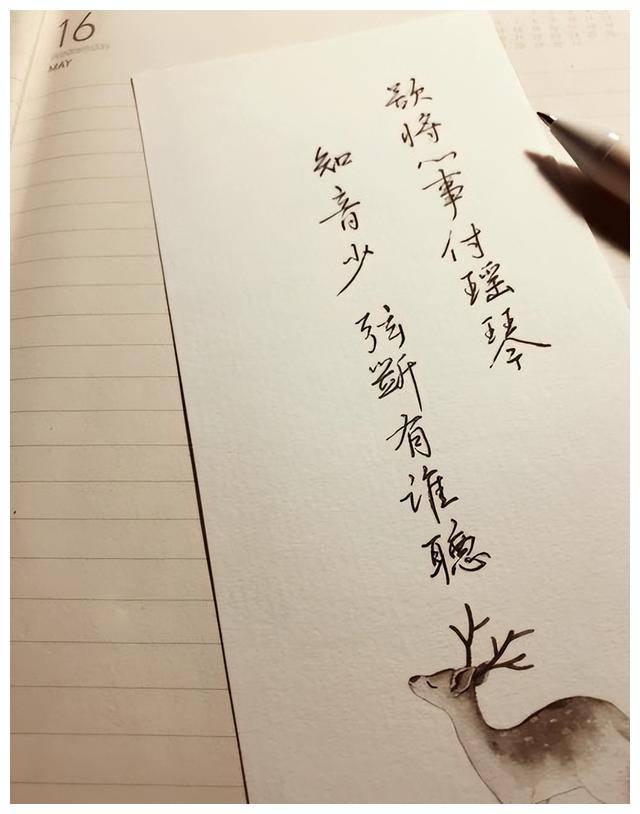 欲将心事付瑶琴
知音少 弦斷有谁聽
16
Wednesday
MAY